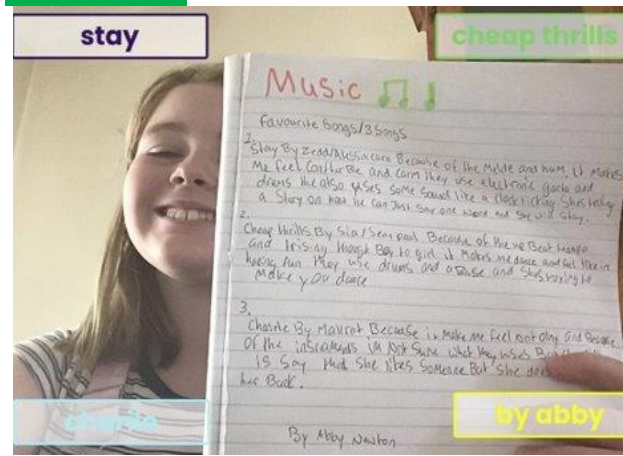 stay
cheap thrills
Music
Favourite Songs/3Songs
Stay By Zedd/Alessia cara Because of the and hum, it Makes
Me feel and carm they use electronic and
drums the also uses some sound like a clock ticking Shes telling
a Story on how he can Just Say one word and she will Stay.
2.
Cheap thrills By Sia/Sean paul Because of the up Beat
and through Boy to girl it Makes me dance and feel like im
having fun they use drums and a Base and Shes trying to
Make you dance
3.
By Because it Make me feel not and Because
of the im Not Sure what they uses
is Say that She likes Someone But She
her Back.
charlie
by abby
By Abby Newton